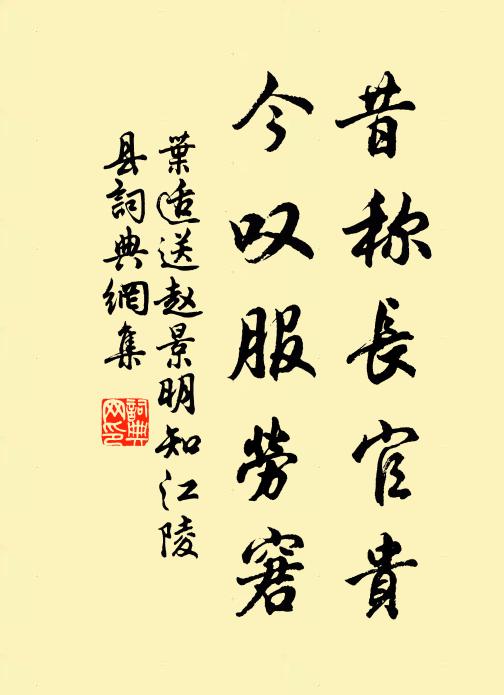 昔称長官貴
今叹服勞窘
葉适送赵景明知江陵
县詞典網集
詞典网印